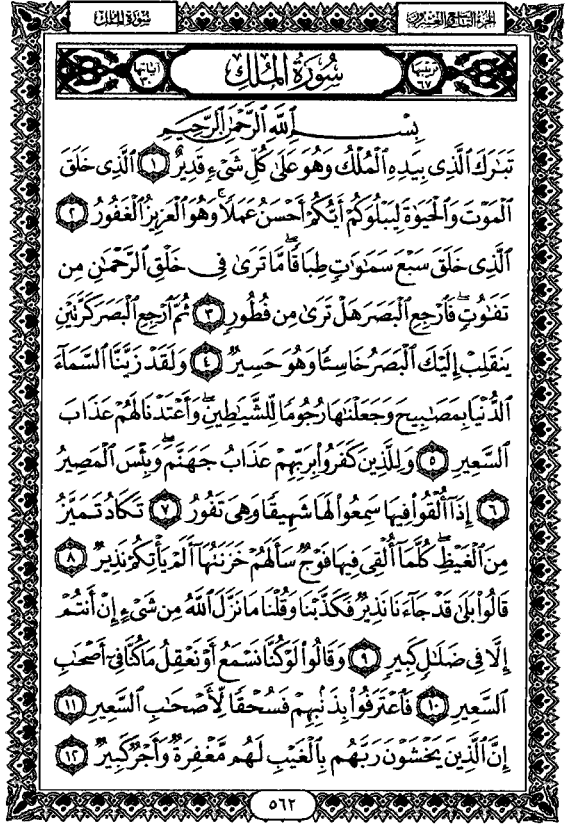 سُورَةُ المُلْكِ الجُزْءُ التَّاسِعُ وَالعِشْرُونَ
ترتيبها ٦٧ سُورَةُ المُلْكِ آياتها ٣٠
بِسْمِ ٱللَّهِ ٱلرَّحْمَٰنِ ٱلرَّحِيمِ
تَبَٰرَكَ ٱلَّذِى بِيَدِهِ ٱلْمُلْكُ وَهُوَ عَلَىٰ كُلِّ شَىْءٍ قَدِيرٌ ١ ٱلَّذِى خَلَقَ
ٱلْمَوْتَ وَٱلْحَيَوٰةَ لِيَبْلُوَكُمْ أَيُّكُمْ أَحْسَنُ عَمَلًا ۚ وَهُوَ ٱلْعَزِيزُ ٱلْغَفُورُ ٢
ٱلَّذِى خَلَقَ سَبْعَ سَمَٰوَٰتٍ طِبَاقًا ۖ مَّا تَرَىٰ فِى خَلْقِ ٱلرَّحْمَٰنِ مِن
تَفَٰوُتٍ ۖ فَٱرْجِعِ ٱلْبَصَرَ هَلْ تَرَىٰ مِن فُطُورٍ ٣ ثُمَّ ٱرْجِعِ ٱلْبَصَرَ كَرَّتَيْنِ
يَنقَلِبْ إِلَيْكَ ٱلْبَصَرُ خَاسِئًا وَهُوَ حَسِيرٌ ٤ وَلَقَدْ زَيَّنَّا ٱلسَّمَآءَ
ٱلدُّنْيَا بِمَصَٰبِيحَ وَجَعَلْنَٰهَا رُجُومًا لِّلشَّيَٰطِينِ ۖ وَأَعْتَدْنَا لَهُمْ عَذَابَ
ٱلسَّعِيرِ ٥ وَلِلَّذِينَ كَفَرُوا۟ بِرَبِّهِمْ عَذَابُ جَهَنَّمَ ۖ وَبِئْسَ ٱلْمَصِيرُ
٦ إِذَآ أُلْقُوا۟ فِيهَا سَمِعُوا۟ لَهَا شَهِيقًا وَهِىَ تَفُورُ ٧ تَكَادُ تَمَيَّزُ
مِنَ ٱلْغَيْظِ ۖ كُلَّمَآ أُلْقِىَ فِيهَا فَوْجٌ سَأَلَهُمْ خَزَنَتُهَآ أَلَمْ يَأْتِكُمْ نَذِيرٌ ٨
قَالُوا۟ بَلَىٰ قَدْ جَآءَنَا نَذِيرٌ فَكَذَّبْنَا وَقُلْنَا مَا نَزَّلَ ٱللَّهُ مِن شَىْءٍ إِنْ أَنتُمْ
إِلَّا فِى ضَلَٰلٍ كَبِيرٍ ٩ وَقَالُوا۟ لَوْ كُنَّا نَسْمَعُ أَوْ نَعْقِلُ مَا كُنَّا فِىٓ أَصْحَٰبِ
ٱلسَّعِيرِ ١٠ فَٱعْتَرَفُوا۟ بِذَنۢبِهِمْ فَسُحْقًا لِّأَصْحَٰبِ ٱلسَّعِيرِ ١١
إِنَّ ٱلَّذِينَ يَخْشَوْنَ رَبَّهُم بِٱلْغَيْبِ لَهُم مَّغْفِرَةٌ وَأَجْرٌ كَبِيرٌ ١٢
٥٦٢